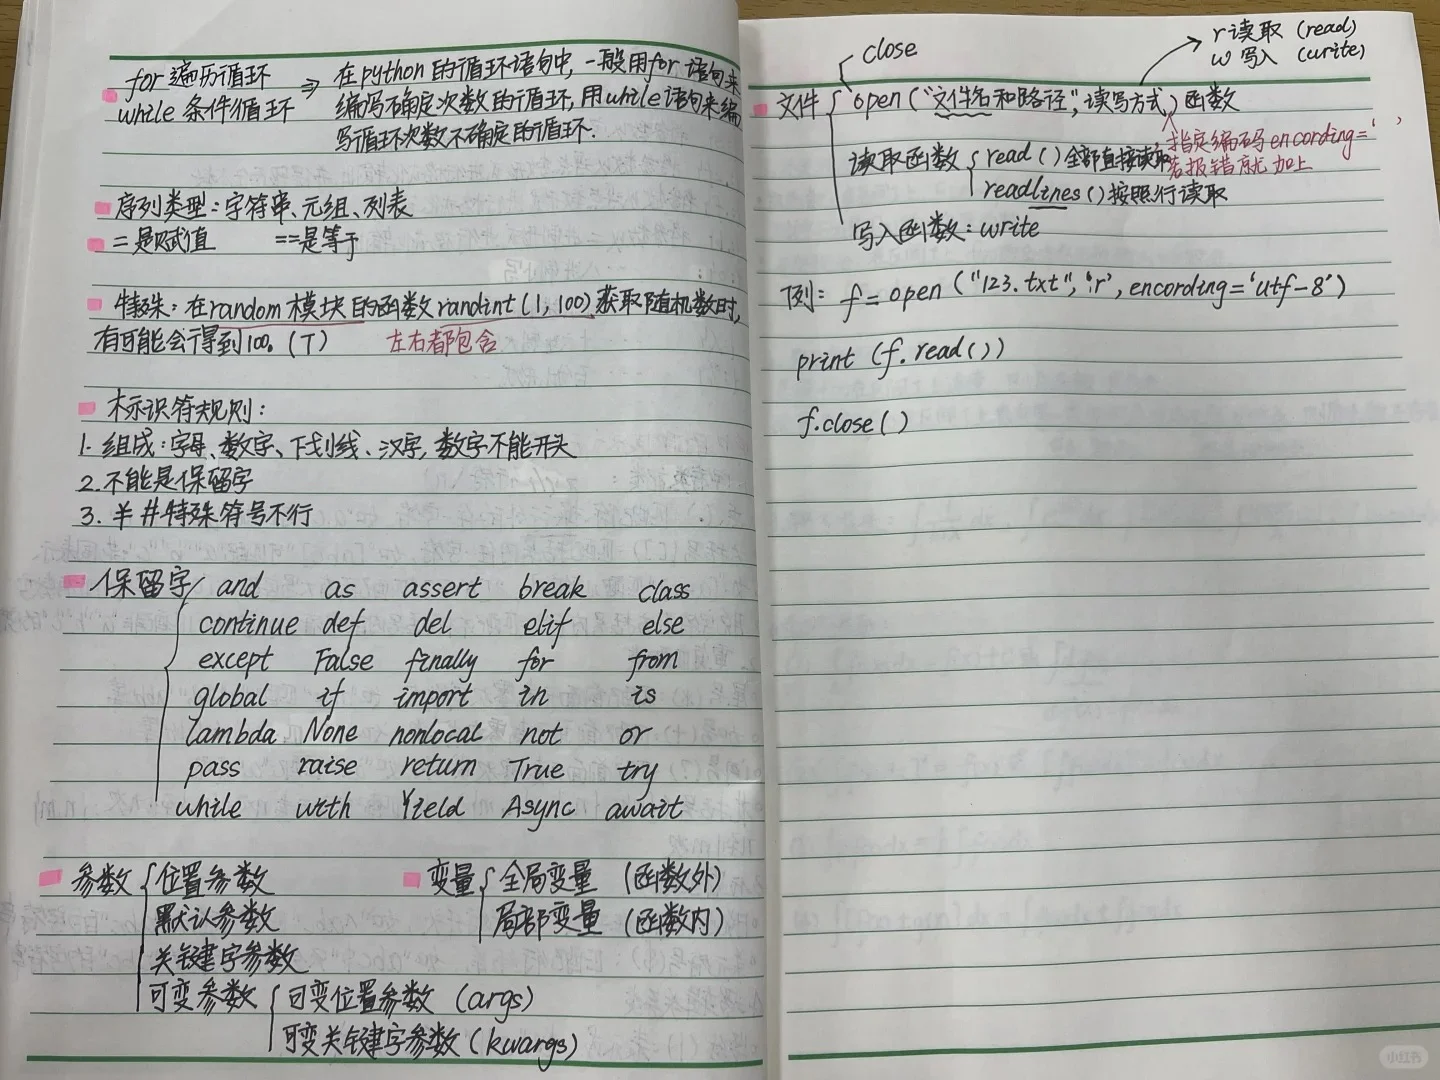 for 遍历循环 ⇒ 在python的循环语句中, 一般用for 语句来
while 条件循环 编写确定次数的循环, 用while语句来编
写循环次数不确定的循环.
序列类型: 字符串、元组、列表
= 是赋值 ==是等于
特殊: 在random 模块的函数randint(1,100)获取随机数时,
有可能会得到100。(T) 左右都包含
标识符规则:
1. 组成: 字母、数字、下划线、汉字, 数字不能开头
2. 不能是保留字
3. 半 # 特殊符号不行
保留字 and as assert break class
continue def del elif else
except False finally for from
global if import in is
lambda None nonlocal not or
pass raise return True try
while with Yield Async await
参数 位置参数 变量 全局变量 (函数外)
默认参数 局部变量 (函数内)
关键字参数
可变参数 可变位置参数 (args)
可变关键字参数 (kwargs)
r 读取 (read)
close w 写入 (write)
文件 open("文件名和路径", 读写方式) 函数
指定编码 encording=' '
读取函数 read () 全部直接读取 若报错就加上
readlines () 按照行读取
写入函数: write
例: f = open ("123.txt", 'r', encording='utf-8')
print (f.read())
f.close()
小红书